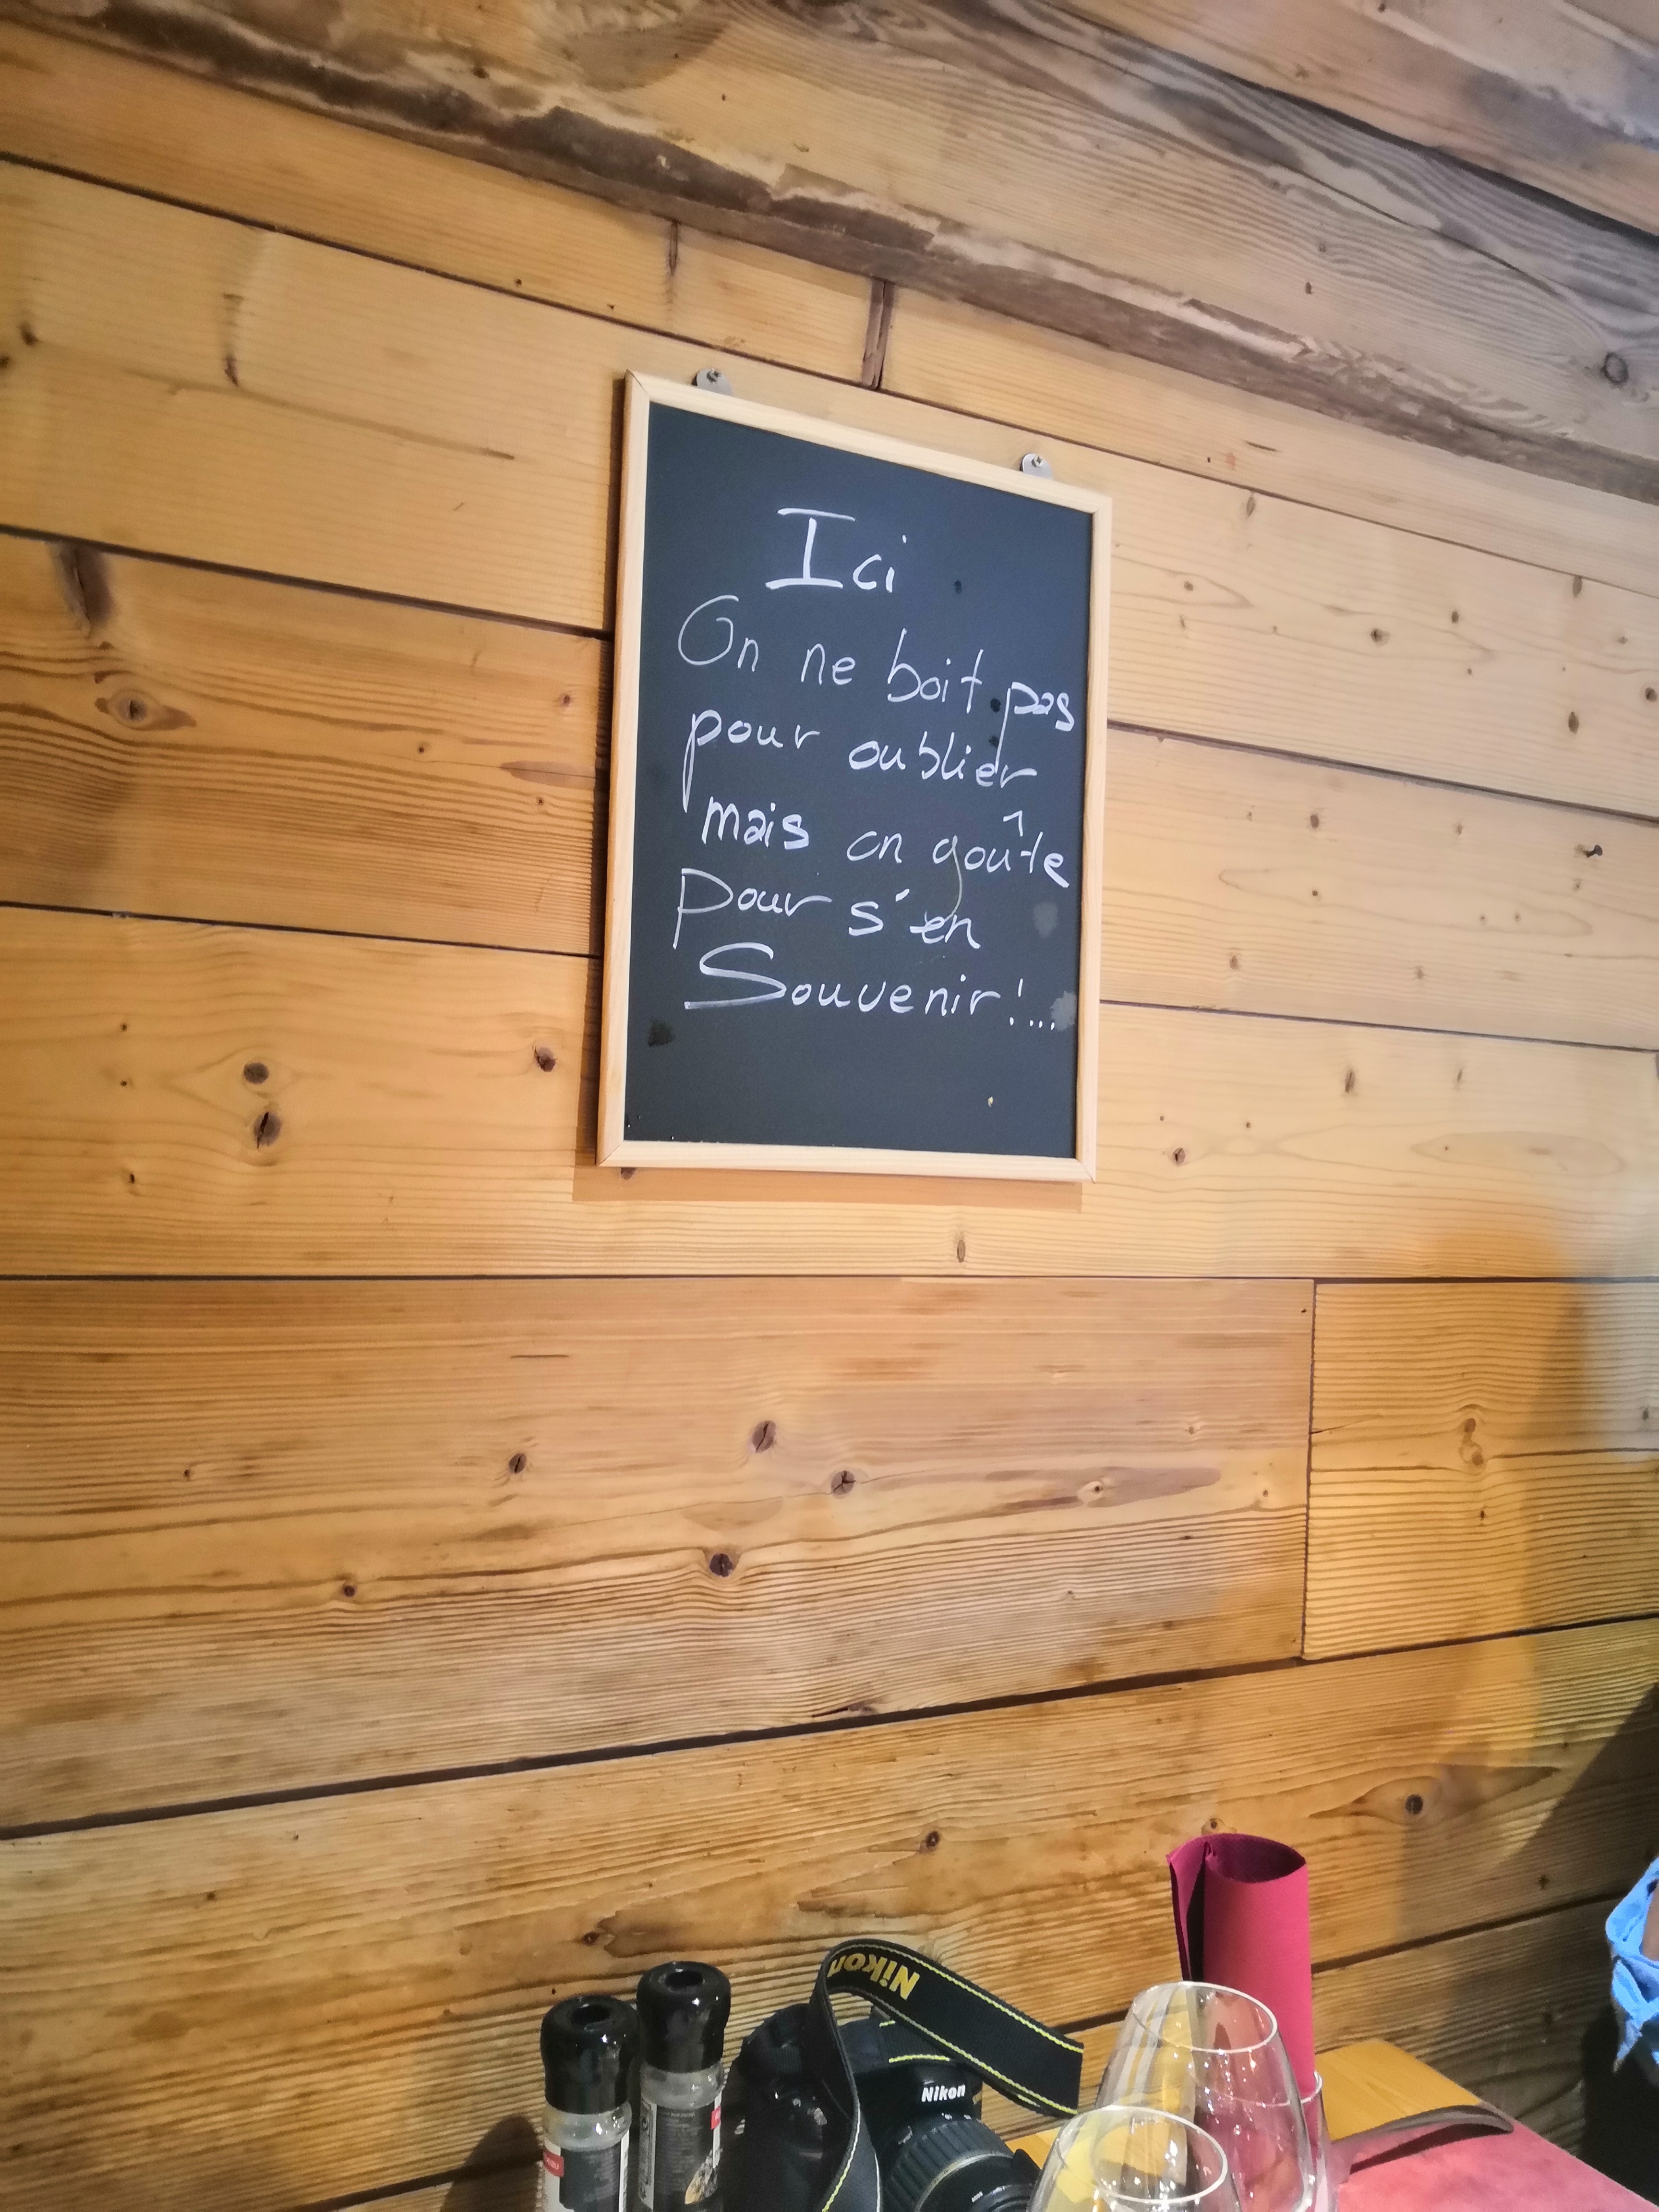 Ici
On ne boit pas
pour oublier
mais on goûte
pour s'en
Souvenir !...
Nikon
Nikon